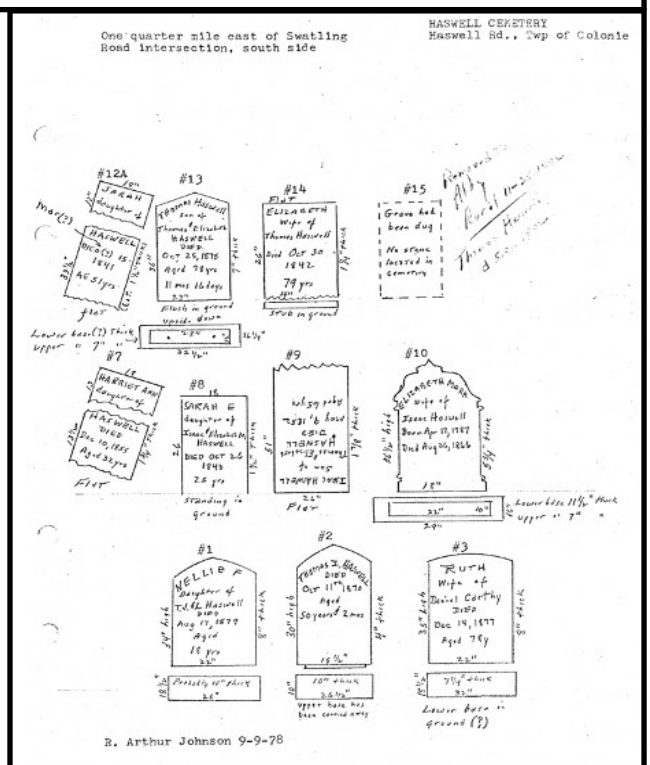 One quarter mile east of Swatling
Road intersection, south side
HASWELL CEMETERY
Haswell Rd., Twp of Colonie
#12A
18"
SARAH
daughter of
Mar(?)
HASWELL
DIED(?) 15-
1841
AE 51 yrs
flat
#13
Thomas Haswell
Son of
Thomas & Elizabeth
HASWELL
DIED
Oct 25, 1875
Aged 78 yrs
11 mos 16 days
22"
36"
7" thick
Flush in ground
upside down
Lower base(?) thick
upper " 7" "
32 1/2"
#14
FLAT
ELIZABETH
Wife of
Thomas Haswell
Died Oct 30
1842
79 yrs
26"
1 3/4" thick
Stub in ground
#15
Grave had
been dug
No stone
located in
cemetery
Removed to
Rural 11-25-1882
Thomas Haswell
#7
18
HARRIET ANN
daughter of
HASWELL
DIED
Dec 10, 1855
Aged 32 yrs
Flat
#8
18
SARAH E
daughter of
Isaac & Elizabeth M.
HASWELL
DIED OCT 26
1843
26
25 yrs
standing in
ground
#9
ISAAC HASWELL
Son of
HASWELL
DIED
May 9, 1852
51"
1 7/8 thick
26"
Flat
#10
ELIZABETH MARK
Wife of
Isaac Haswell
Born Apr 17, 1787
Died Aug 26, 1866
36 1/2" high
5 3/4" thick
18"
22"
10"
29"
16"
Lower base 11 1/2" thick
upper " 7" "
#1
NELLIE F
Daughter of
T.J. & L Haswell
DIED
Aug 17, 1879
Aged
18 yrs
22"
34" high
8" thick
Probably 10" thick
26"
18 1/2"
#2
THOMAS I. HASWELL
DIED
Oct 11th, 1870
Aged
50 years & 2 mos
30" high
4" thick
18 1/2"
10" thick
26 1/2"
10"
Upper base has
been carried away
#3
RUTH
Wife of
Daniel Corthy
DIED
Dec 14, 1877
Aged 78y
22"
35" high
8" thick
7 3/4" thick
32"
18 1/2"
Lower base in
ground (?)
R. Arthur Johnson 9-9-78